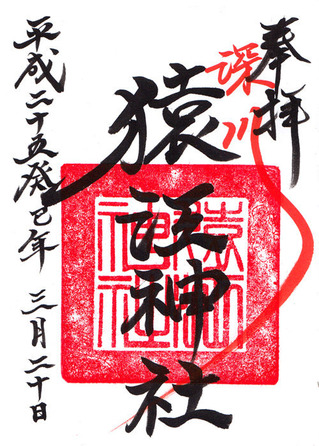 奉拝
深川
猿江神社
平成二十五癸巳年 三月二十日